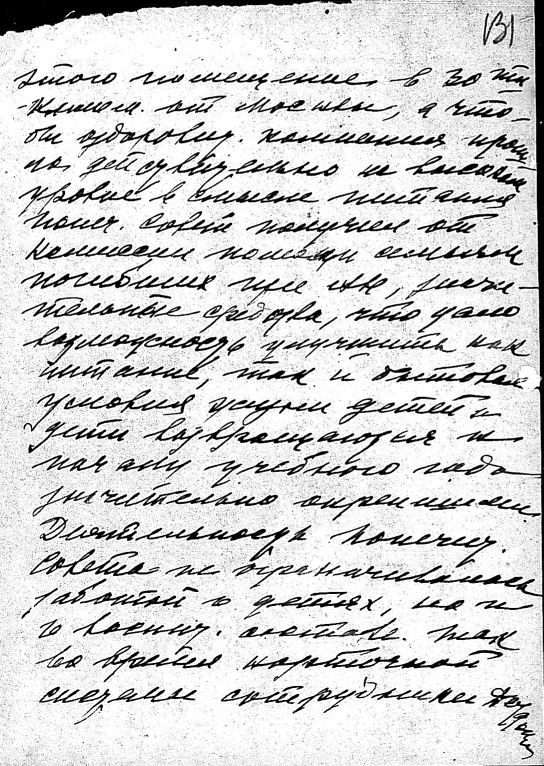 131
этого помещение в 30 ти
килом. от Москвы, а что-
бы оздоровит. компания прош-
ла действительно на высоком
уровне в смысле питания
попеч. совет получил от
комиссии помощи семьям
погибших при АК, значи-
тельные средства, что дало
возможность улучшить как
питание, так и бытовые
условия детей и
дети возвращаются к
началу учебного года
значительно окрепшими.
Деятельность попечит.
совета не ограничивалась
заботой о детях, но и
о воспит. составе. Так
во время карточной
системы сотрудники